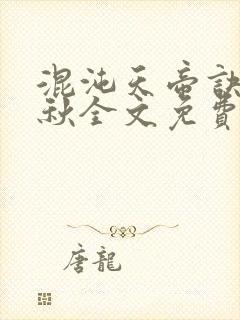 混沌天帝訣
秋全文免費
唐龍